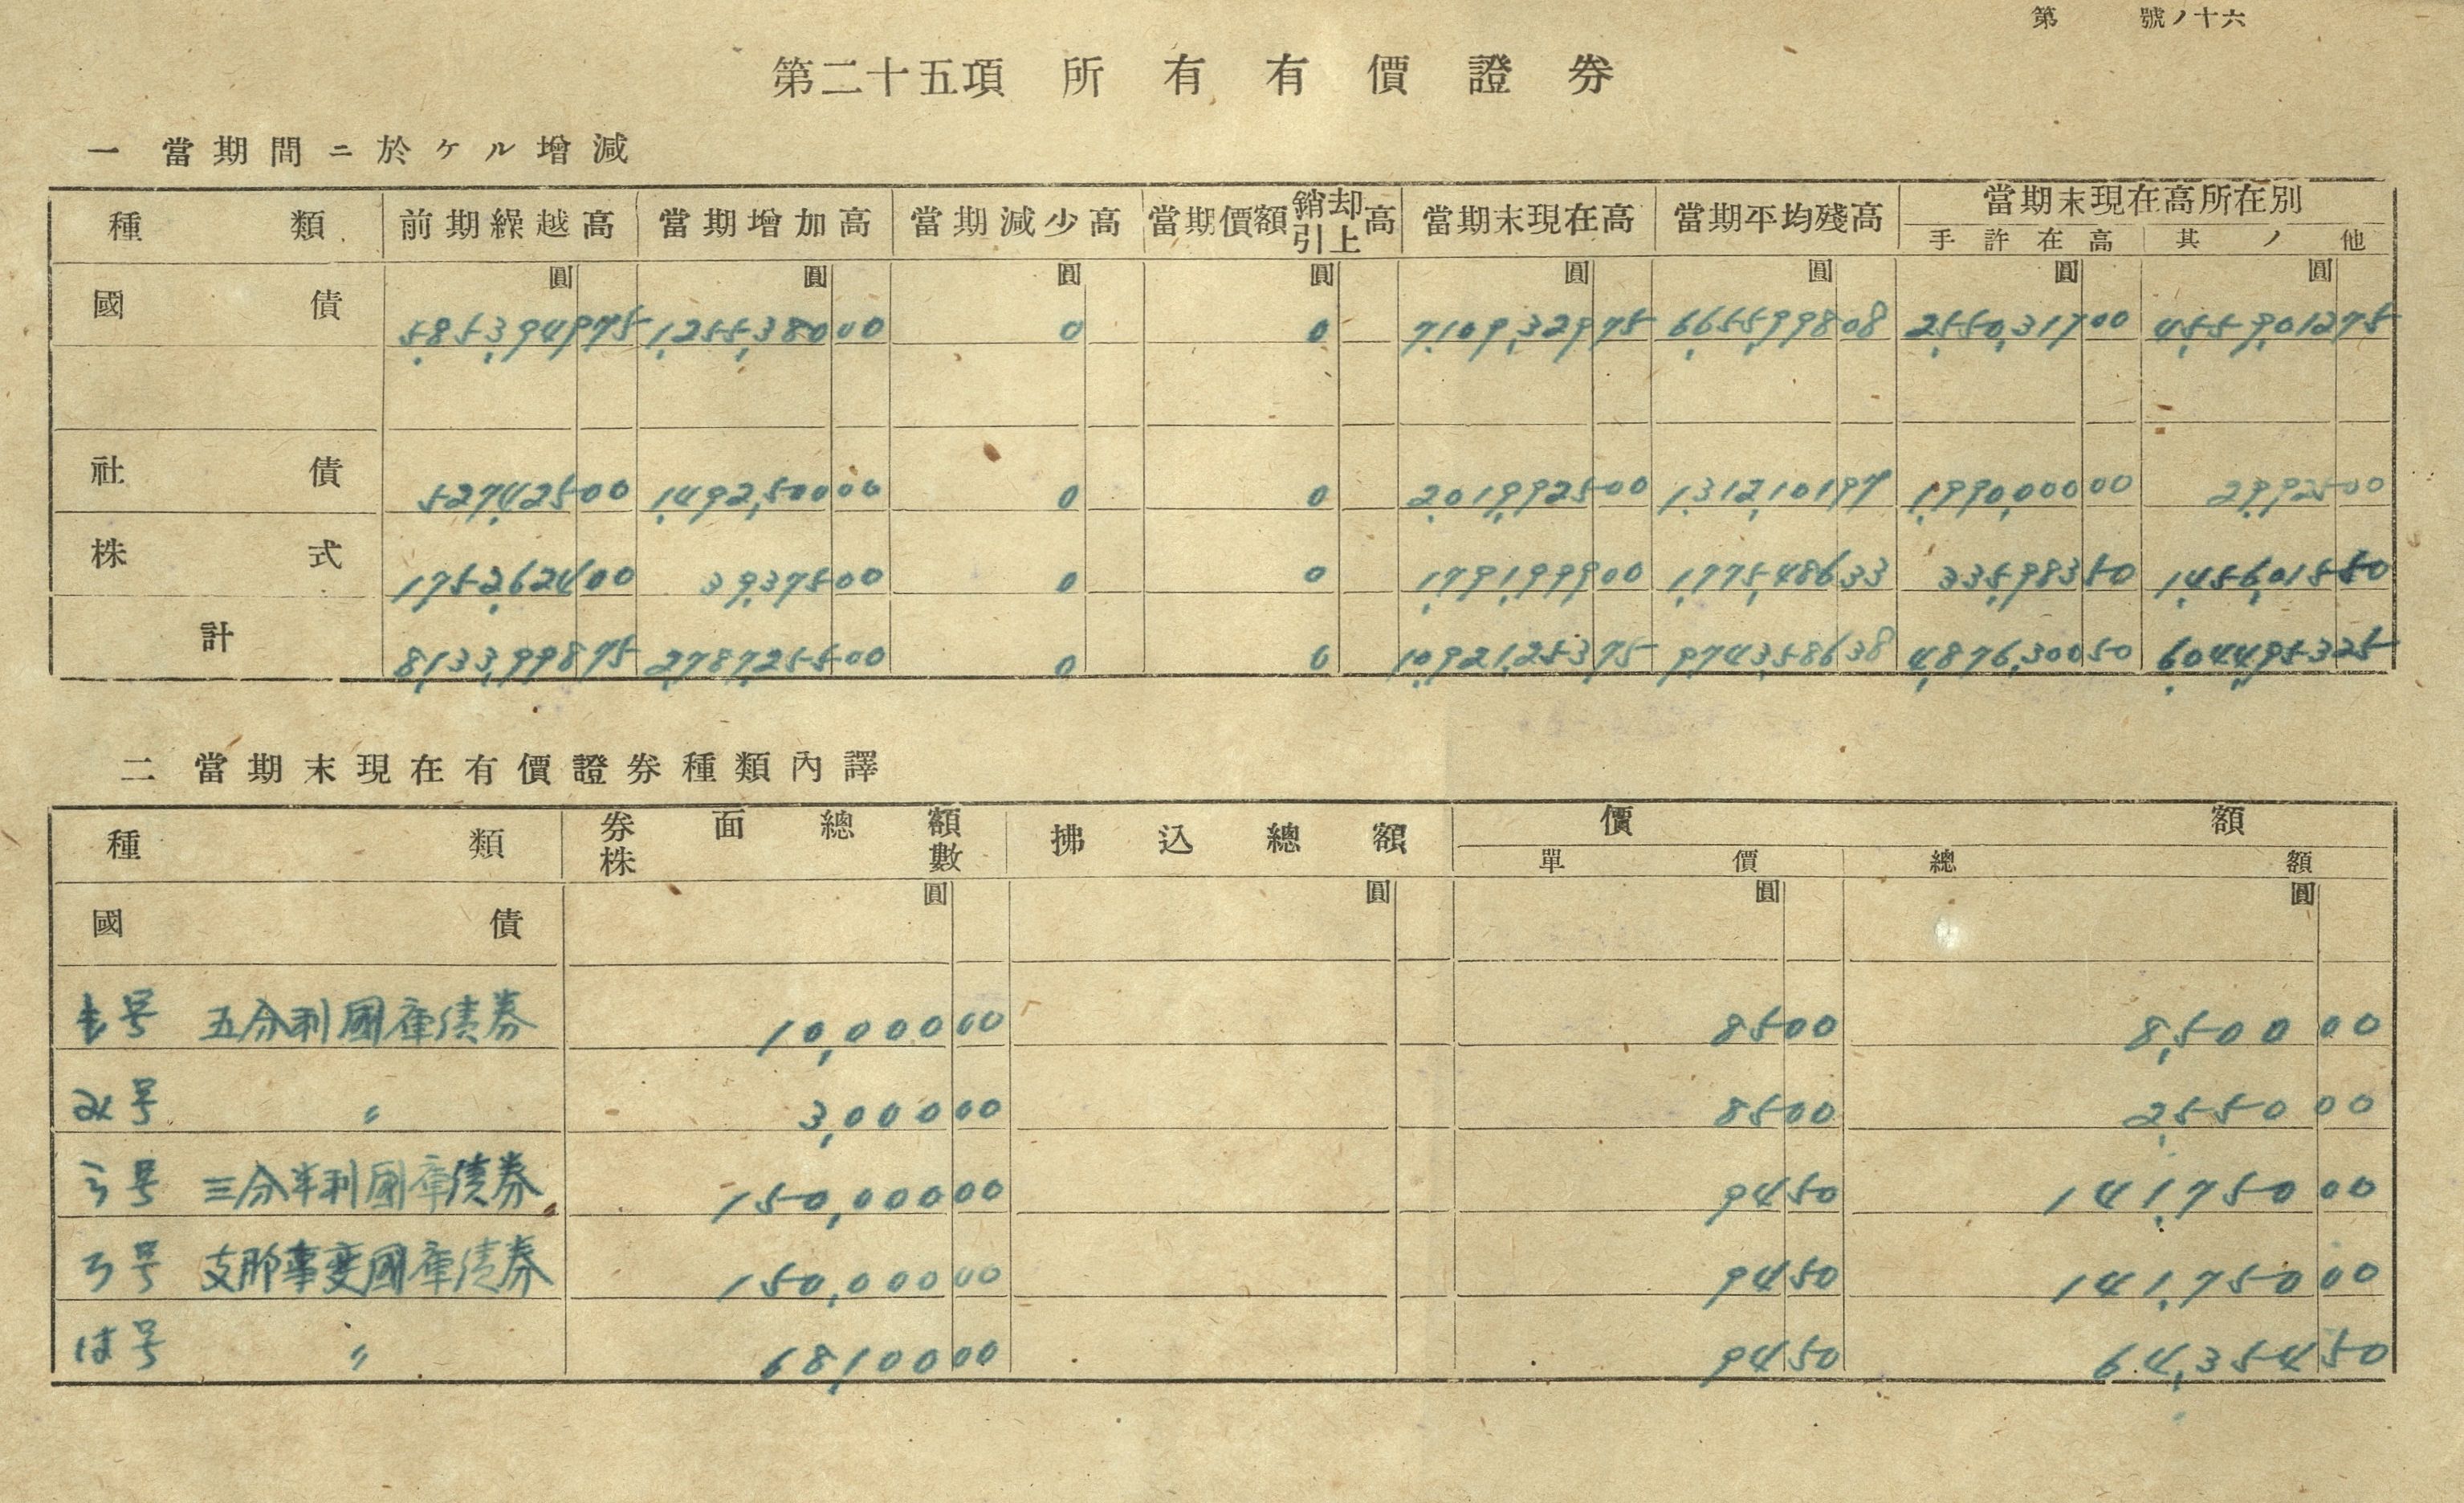 第 號ノ十六
第二十五項 所有有價證券
一 當期間ニ於ケル增減
種類 前期繰越高 當期增加高 當期減少高 當期價額銷却引上高 當期末現在高 當期平均殘高 當期末現在高所在別
手許在高 其ノ他
圓 圓 圓 圓 圓 圓 圓 圓
國債 5,853,949 75 1,255,380 00 0 0 7,109,329 75 6,655,998 08 2,550,317 00 4,559,012 75
社債 527,425 00 1,492,500 00 0 0 2,019,925 00 1,312,101 97 1,990,000 00 29,925 00
株式 1,752,624 00 39,375 00 0 0 1,791,999 00 1,775,486 33 335,983 50 1,456,015 50
計 8,133,998 75 2,787,255 00 0 0 10,921,253 75 9,743,586 38 4,876,300 50 6,044,953 25
二 當期末現在有價證券種類內譯
種類 券面總額 株數 拂込總額 價額
單價 總額
圓 圓 圓 圓
國債
号 五分利國庫債券 10,000 00 85 00 8,500 00
み号 〃 3,000 00 85 00 2,550 00
う号 三分半利國庫債券 150,000 00 94 50 141,750 00
ろ号 支那事変國庫債券 150,000 00 94 50 141,750 00
は号 〃 68,100 00 94 50 64,354 50